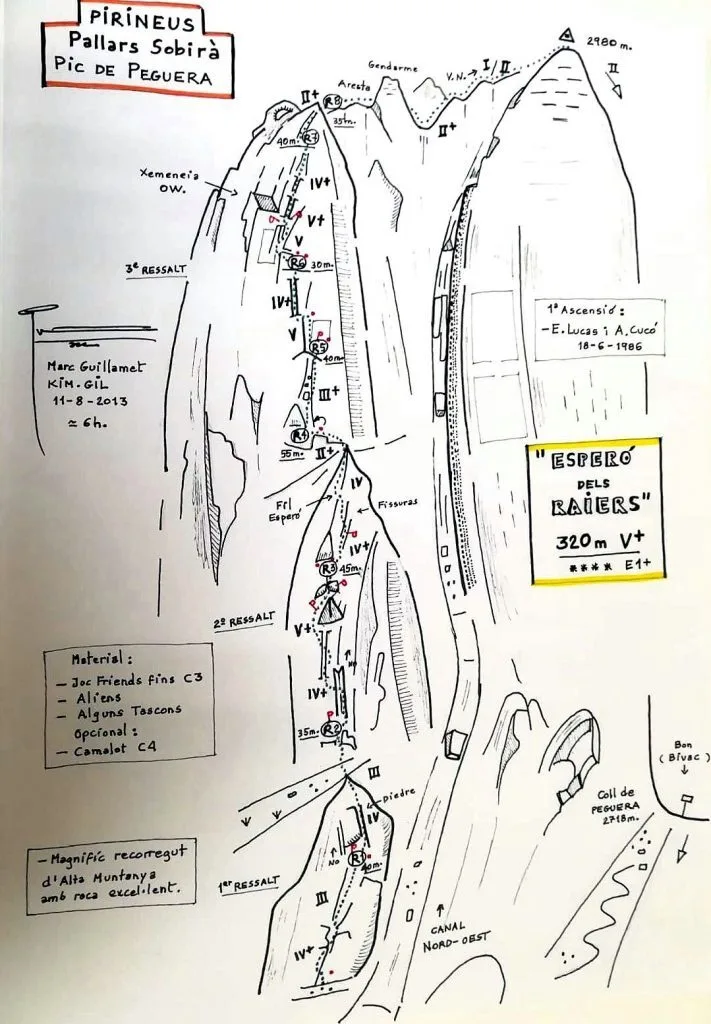 PIRINEUS
Pallars Sobirà
PIC DE PEGUERA
2980 m.
II
Gendarme
V.N. → I/II
Aresta
II+
R8
35m.
II+
40m. R7
Xemeneia
OW.
IV+
V+
V
R6 30m.
3e RESSALT
IV+
V
R5
40m.
III+
R4
55m.
II+
1ª Ascensió:
- E. Lucas i A. Cucó
18-6-1986
Marc Guillamet
KIM-GIL
11-8-2013
≃ 6h.
"ESPERÓ
DELS
RAIERS"
320m V+
**** E1+
IV
Fil
Esperó
Fissuras
IV+
R3 45m.
2º RESSALT
V+
No
IV+
35m. R2
Material:
- Joc Friends fins C3
- Aliens
- Alguns Tascons
Opcional:
- Camalot C4
III
piedre
IV
No
R1
40m.
Bon
(Bivac)
Coll de
PEGUERA
2718m.
- Magnific recorregut
d'Alta Muntanya
amb roca excel·lent.
1er RESSALT
III
IV+
CANAL
NORD-OEST